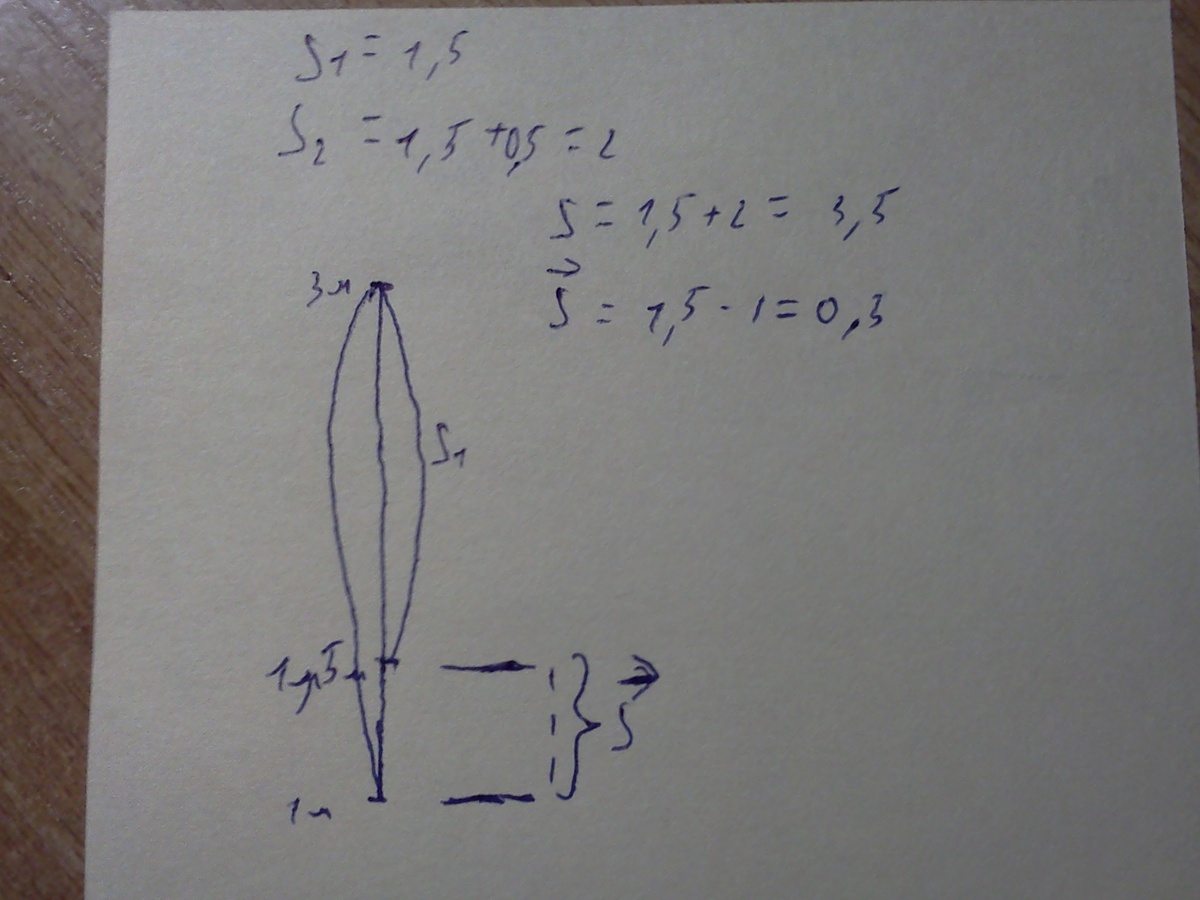 S1 = 1,5
S2 = 1,5 + 0,5 = 2
S = 1,5 + 2 = 3,5
S⃗ = 1,5 - 1 = 0,3
3м
S1
1м,5м
S⃗
1м